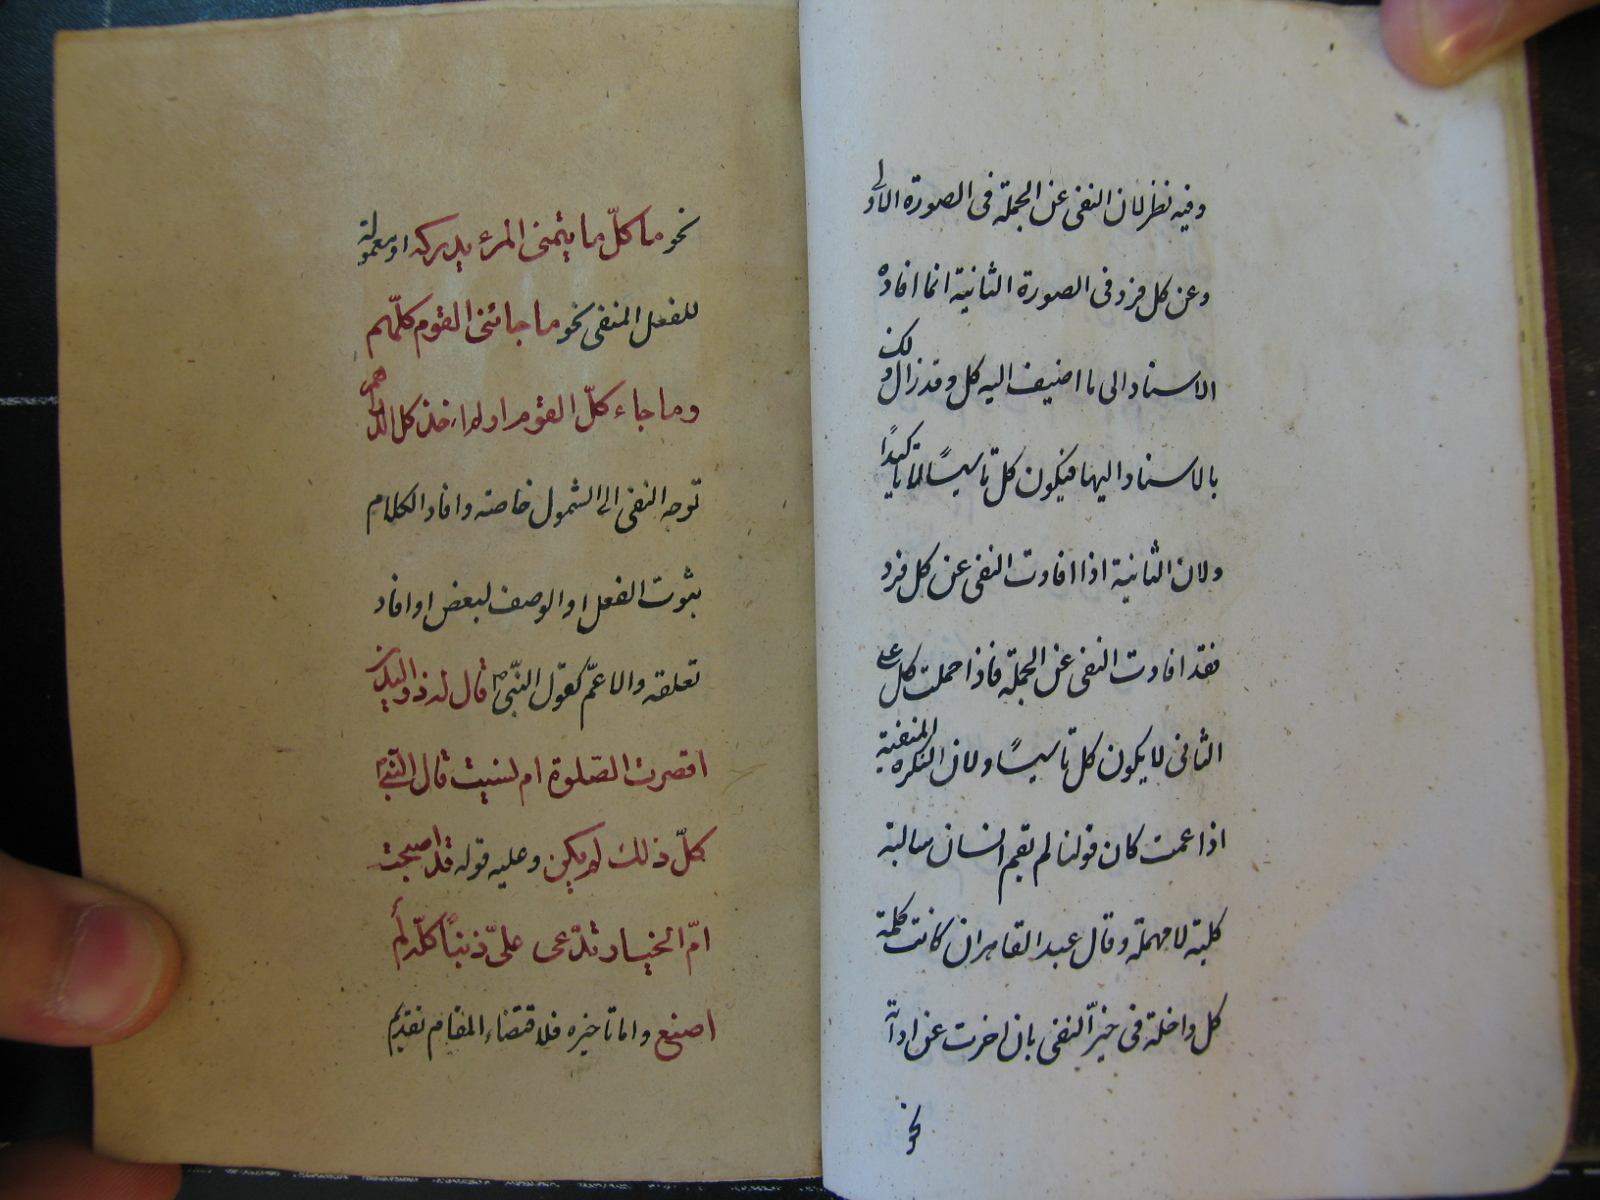 وفيه نظر لان النفى عن الجملة فى الصورة الاولى
وعن كل فرد فى الصورة الثانية انما افاده
الاسناد الى ما اضيف اليه كل وقد زال ذلك
بالاسناد اليها فيكون كل تاسيسًا لا تاكيدًا
ولان الثانية اذا افادت النفى عن كل فرد
فقد افادت النفى عن الجملة فاذا حملت كل على
الثانى لا يكون كل تاسيسًا ولان النكرة المنفية
اذا عمت كان قولنا لم يقم انسان سالبة
كلية لا مهملة وقال عبد القاهر ان كانت كلمة
كل داخلة فى حيّز النفى بان اخرت عن اداته
نحو
نحو ما كلّ ما يتمنى المرء يدركه او معمولة
للفعل المنفى نحو ما جائنى القوم كلّهم
وما جاء كلّ القوم او لم اخذ كل الدراهم
توجه النفى الى الشمول خاصة وافاد الكلام
ثبوت الفعل او الوصف لبعض او افاد
تعلقه والا عمّ كقول النبىّ ص قال له ذو اليدين
اقصرت الصّلوة ام نسيت قال النّبىّ
كلّ ذلك لم يكن وعليه قوله قد اصبحت
امّ الخيار تدّعى علىّ ذنبًا كلّه لم
اصنع واما تاخيره فلاقتضاء المقام تقديم